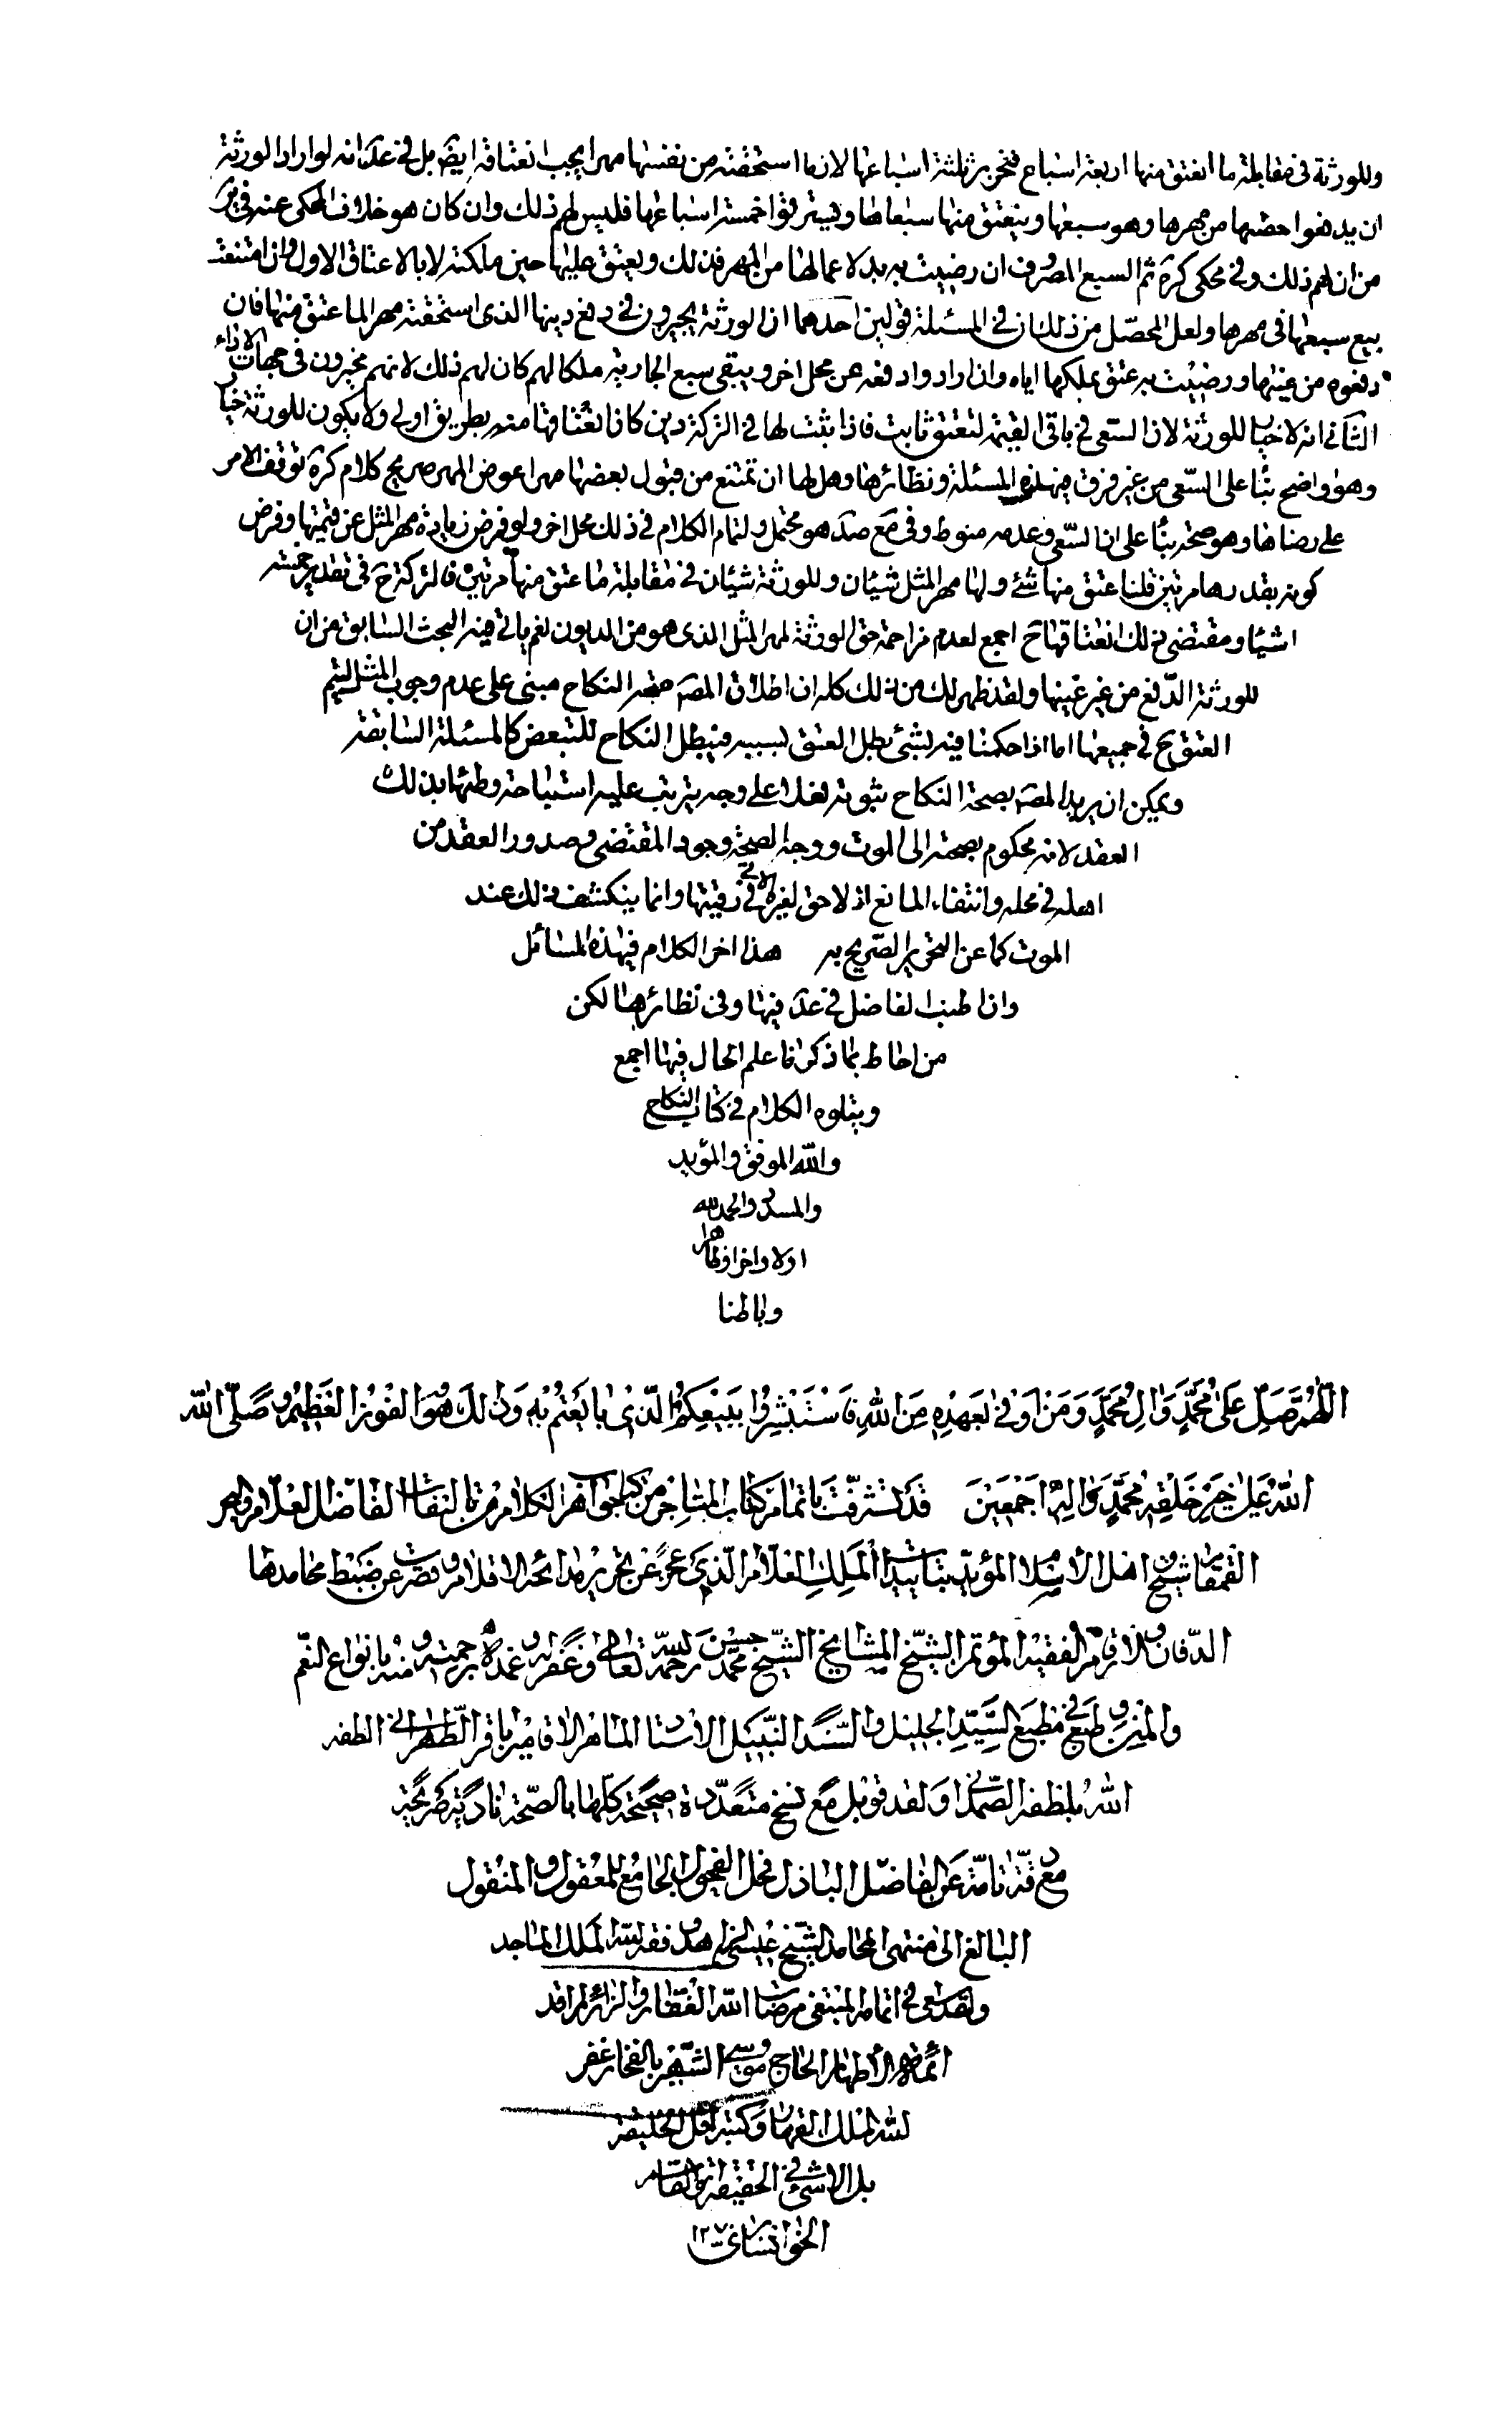 وللورثة في مقابلة ما انعتق منها اربعة اسباع فتخبر بثلثة اسباعها لان ما استحقته من نفسها مهرا يجب انعتاقه ايضا بل في عد انه لو اراد الورثة
ان يدفعوا حصتها من مهرها وهو سبعها وينعتق منها سبعاها ويسترقوا خمسة اسباعها فليس لهم ذلك وان كان هو خلاف المحكى عنه في ير
من ان لهم ذلك وفي محكى كرة ثم السبع المصروف ان رضيت به بدلا عما لها من المهر فذلك ويعتق عليها حين ملكته لا بالاعتاق الاول وان امتنعت
بيع سبعها في مهرها ولعل المحصّل من ذلك ان في المسئلة قولين احدهما ان الورثة يجبرون في دفع دينها الذى استحقته مهرا لما عتق منها فان
دفعوه من عينها ورضيت به عتق بملكها اياه وان ارادوا دفعه من محل اخر ويبقى سبع الجارية ملكا لهم كان لهم ذلك لانهم مخيرون في جهات الاداء
الثاني انه لا خيار للورثة لان السعى في باقى القيمة لتعتق ثابت فاذا ثبت لها في التركة دين كان انعتاقها منه بطريق اولى ولا يكون للورثة خيار
وهو واضح بناء على السّعى من غير فرق في هذه المسئلة ونظائرها وهل لها ان تمتنع من قبول بعضها مهرا عوض المهر صريح كلام كرة توقف الامر
على رضاها وهو صحة بناء على ان السّعى وعدمه منوط وفي مع صد هو محتمل ولتمام الكلام في ذلك محل اخر ولو فرض زيادة مهر المثل عن قيمتها وفرض
كونه بقدرها مرتين قلنا عتق منها شئ ولها مهر المثل شيئان وللورثة شيئان في مقابلة ما عتق منها مرتين فالتركة ح في تقدير خمسة
اشياء ومقتضى ذلك انعتاقها ح اجمع لعدم مزاحمة حق الورثة لمهر المثل الذى هو من الديون نعم ياتى فيه البحث السابق من ان
للورثة الدّفع من غير عينها ولقد ظهر لك من ذلك كله ان اطلاق المص صحة النكاح مبنى على عدم وجوب المثل ليتم
العتق ح في جميعها اما اذا حكمنا فيه لشئ بطل العتق بسببه فيبطل النكاح للتبعض كالمسئلة السّابقة
ويمكن ان يريد المص بصحة النكاح ثبوته فعلا على وجه يترتب عليه استباحة وطئها بذلك
العقد لانه محكوم بصحته الى الموت ووجه الصحة وجود المقتضى وصدور العقد من
اهله في محله وانتفاء المانع اذ لا حق لغيره الان في رقيتها وانما ينكشف ذلك عند
الموت كما عن التحرير التصريح به هذا اخر الكلام في هذه المسائل
وان اطنب الفاضل في عد فيها وفي نظائرها لكن
من احاط بما ذكرنا علم الحال فيها اجمع
ويتلوه الكلام في كتاب النكاح
والله الموفق والمؤيد
والمسدد والحمد لله
اولا واخرا وظاهرا
وباطنا
اللهم صَلِّ عَلىٰ مُحمَّدٍ وَآلِ مُحَمَّدٍ وَمَنْ اَوْفىٰ بِعَهْدِهِ مِنَ اللهِ فَاسْتَبْشِرُوا بِبَيْعِكُمُ الَّذى بايَعْتُمْ بِهِ وَذلِكَ هُوَ الْفَوْزُ الْعَظِيْمُ وَصَلَّى اللهُ
اللهُ عَلىٰ خَيْرِ خَلْقِهِ مُحَمَّدٍ وَالِهِ اَجْمَعِيْنَ قَد تشرفت باتمام كتاب المتاجر من كتاب جواهر الكلام من تاليفات الفاضل العلام والبحر
القمقام شيخ اهل الاسلام المؤيد بتاييدات المَلِكِ العَلّام الّذى عجز عن تحرير مدائحه الاقلام وقصرت عن ضبط محامدها
الدفاتر والارقام الفقيه المؤتمن الشّيخ المشايخ الشّيخ محمّد حسن رحمه الله تعالى وغفر له وتغمده برحمته ومنه بانواع النّعم
والمنن وطبع في مطبع السَّيِّدِ الجليل والسَّنَد النَّبيل الاستاد الماهر الاقا ميرباقر الطّهراني الظفه
الله بلطفه الصّمدانى وَلقد قوبل مَع نسخ متعدّدة صحيحة كلها بالصّحة نادية كرة بعد
مع دقّة تامّة عن الفاضل الباذل فحل الفحول الجامع للمعقول والمنقول
البالغ الى منتهى المحامد الشيخ وفقه الله الملك الماجد
ولقد سعى في اتمامه المبتغى مرضات الله الغفار والزائر لمراقد
ائمّة الاطهار الحاج موسى الشّهير بالفخار غفر
له الله الملك القهار وكتبه اقل الخليقة
بل لا شئ في الحقيقة ابو القاسم
الخوانسارى